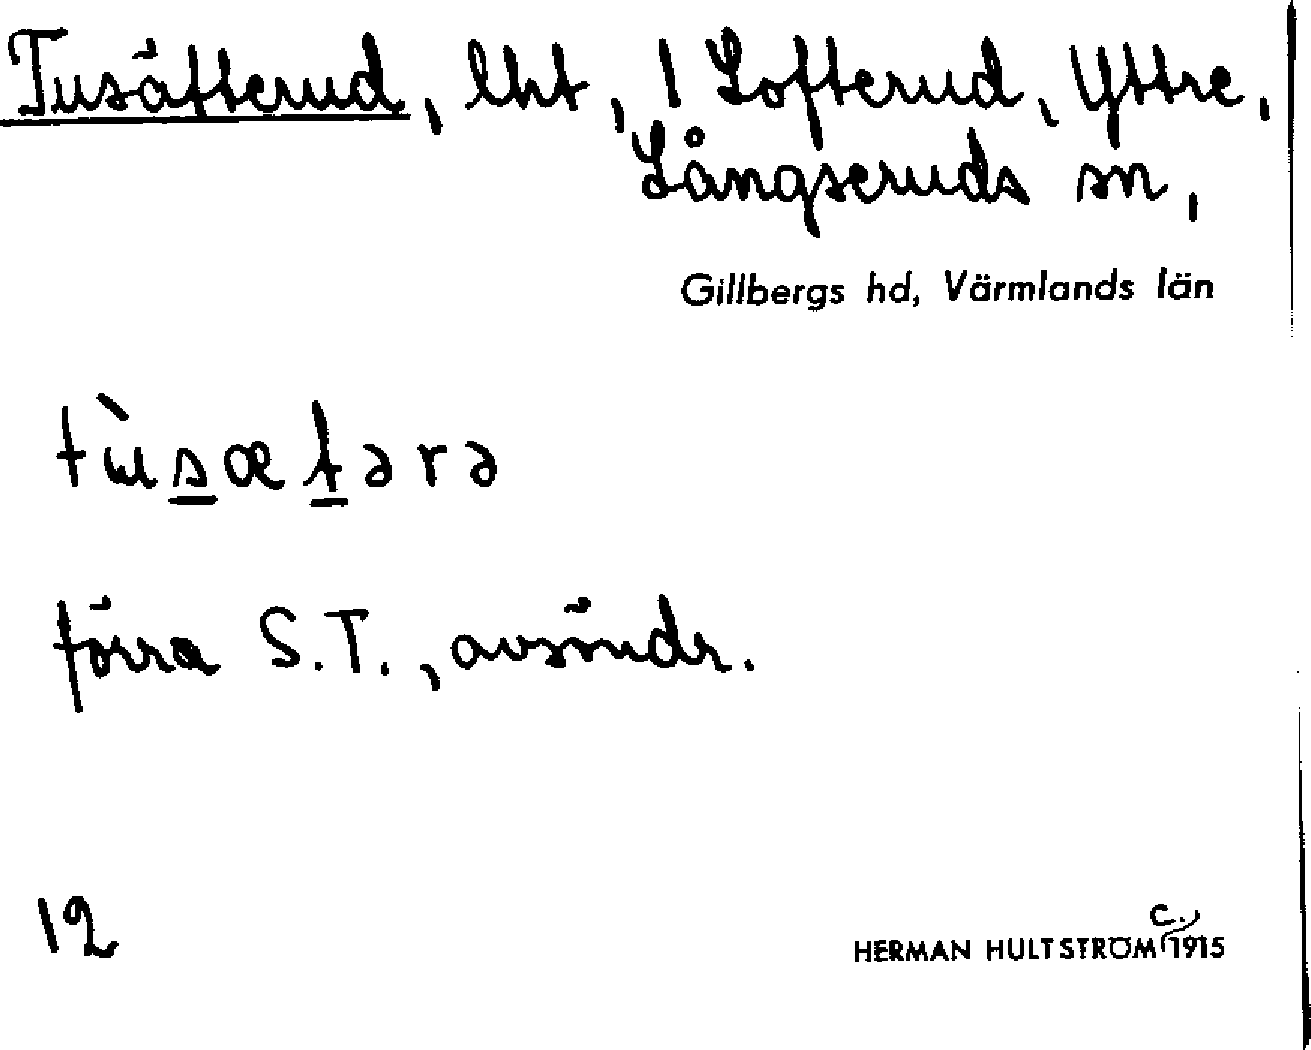 Tusäfterud, lht, 1 Lofterud, Yttre,
Långseruds sn,
Gillbergs hd, Värmlands län
tùsætərə
förra S.T., avsöndr.
12
HERMAN HULTSTRÖM c. 1915